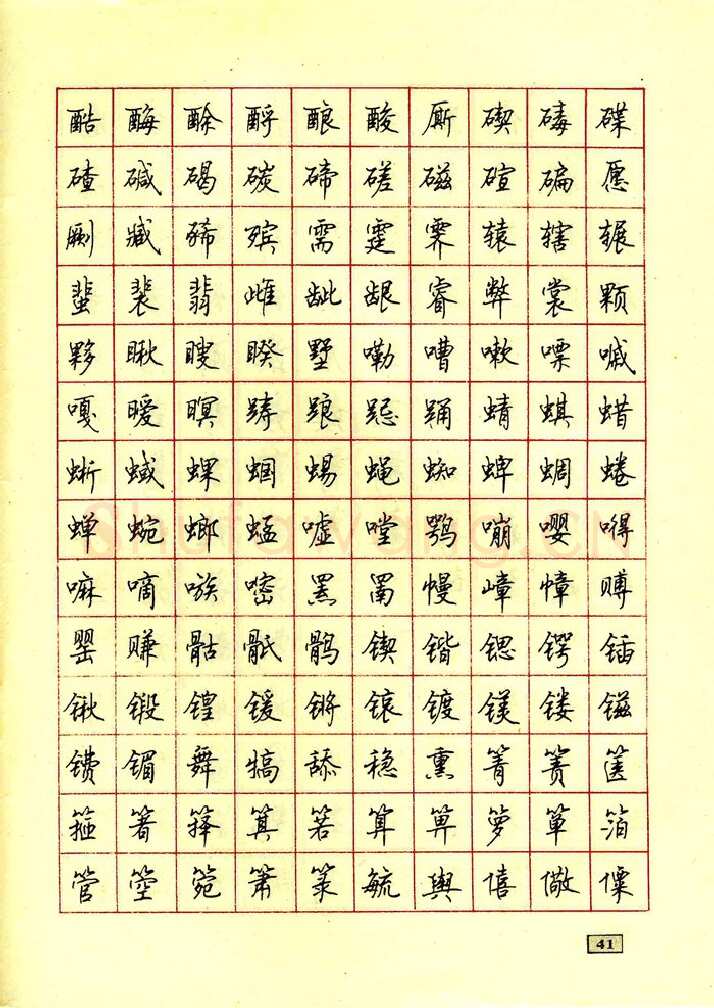 酷酶酴酹酿酸厮碶碡碟
碴碱碣碳碲磋磁碹碥愿
劂臧豨殡需霆霁辕辖辗
蜚裴翡雌龇龈睿弊裳颗
夥瞅瞍睽墅嘞嘈嗽嘌嘁
嘎暧暝踌踉跽踊蜻蜞蜡
蜥蜮蜾蝈蜴蝇蜘蜱蜩蜷
蝉蜿螂蜢嘘嘡鹗嘣嘤嘚
嘛嘀嗾嘧罴罱幔嶂幛赙
罂赚骷骶鹘锲锴锶锷锸
锹锻锽锾锵锿镀镁镂镃
镄镅舞犒舔稳熏箐箦箧
箍箸箨箕箬算箅箩箪箔
管箜箢箫箓毓舆僖儆僳
41